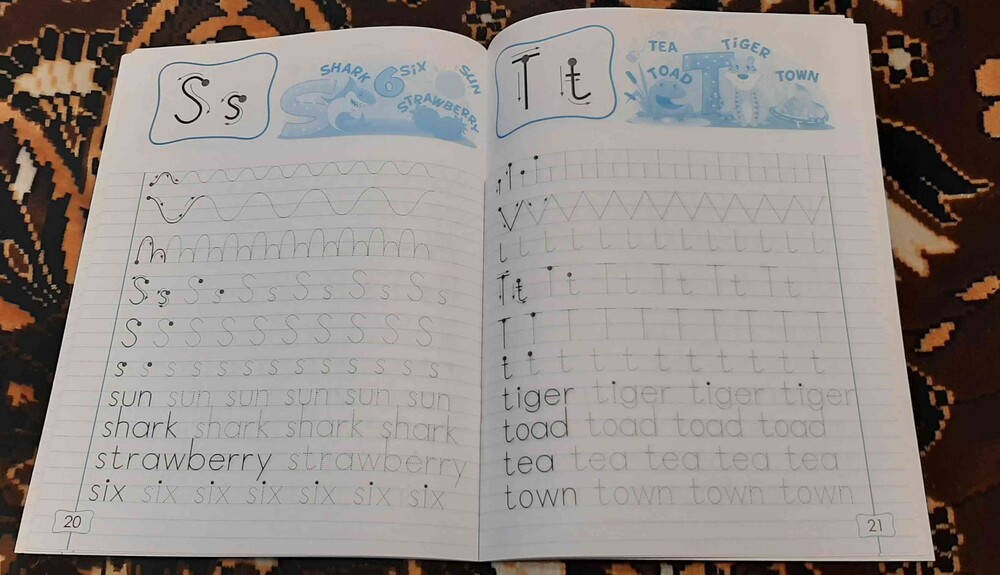 S s
SHARK 6 SIX SUN
STRAWBERRY
S s S s S s S s S s S s
S S S S S S S S S S
s s s s s s s s s s s s s
sun sun sun sun sun sun
shark shark shark shark
strawberry strawberry
six six six six six six six
20
T t
TEA TiGER
TOAD T TOWN
t t t t t t t t t t t t
T t T t T t T t T t T t T t
T T T T T T T T T T T T
t t t t t t t t t t t
tiger tiger tiger tiger
toad toad toad toad
tea tea tea tea tea
town town town town
21